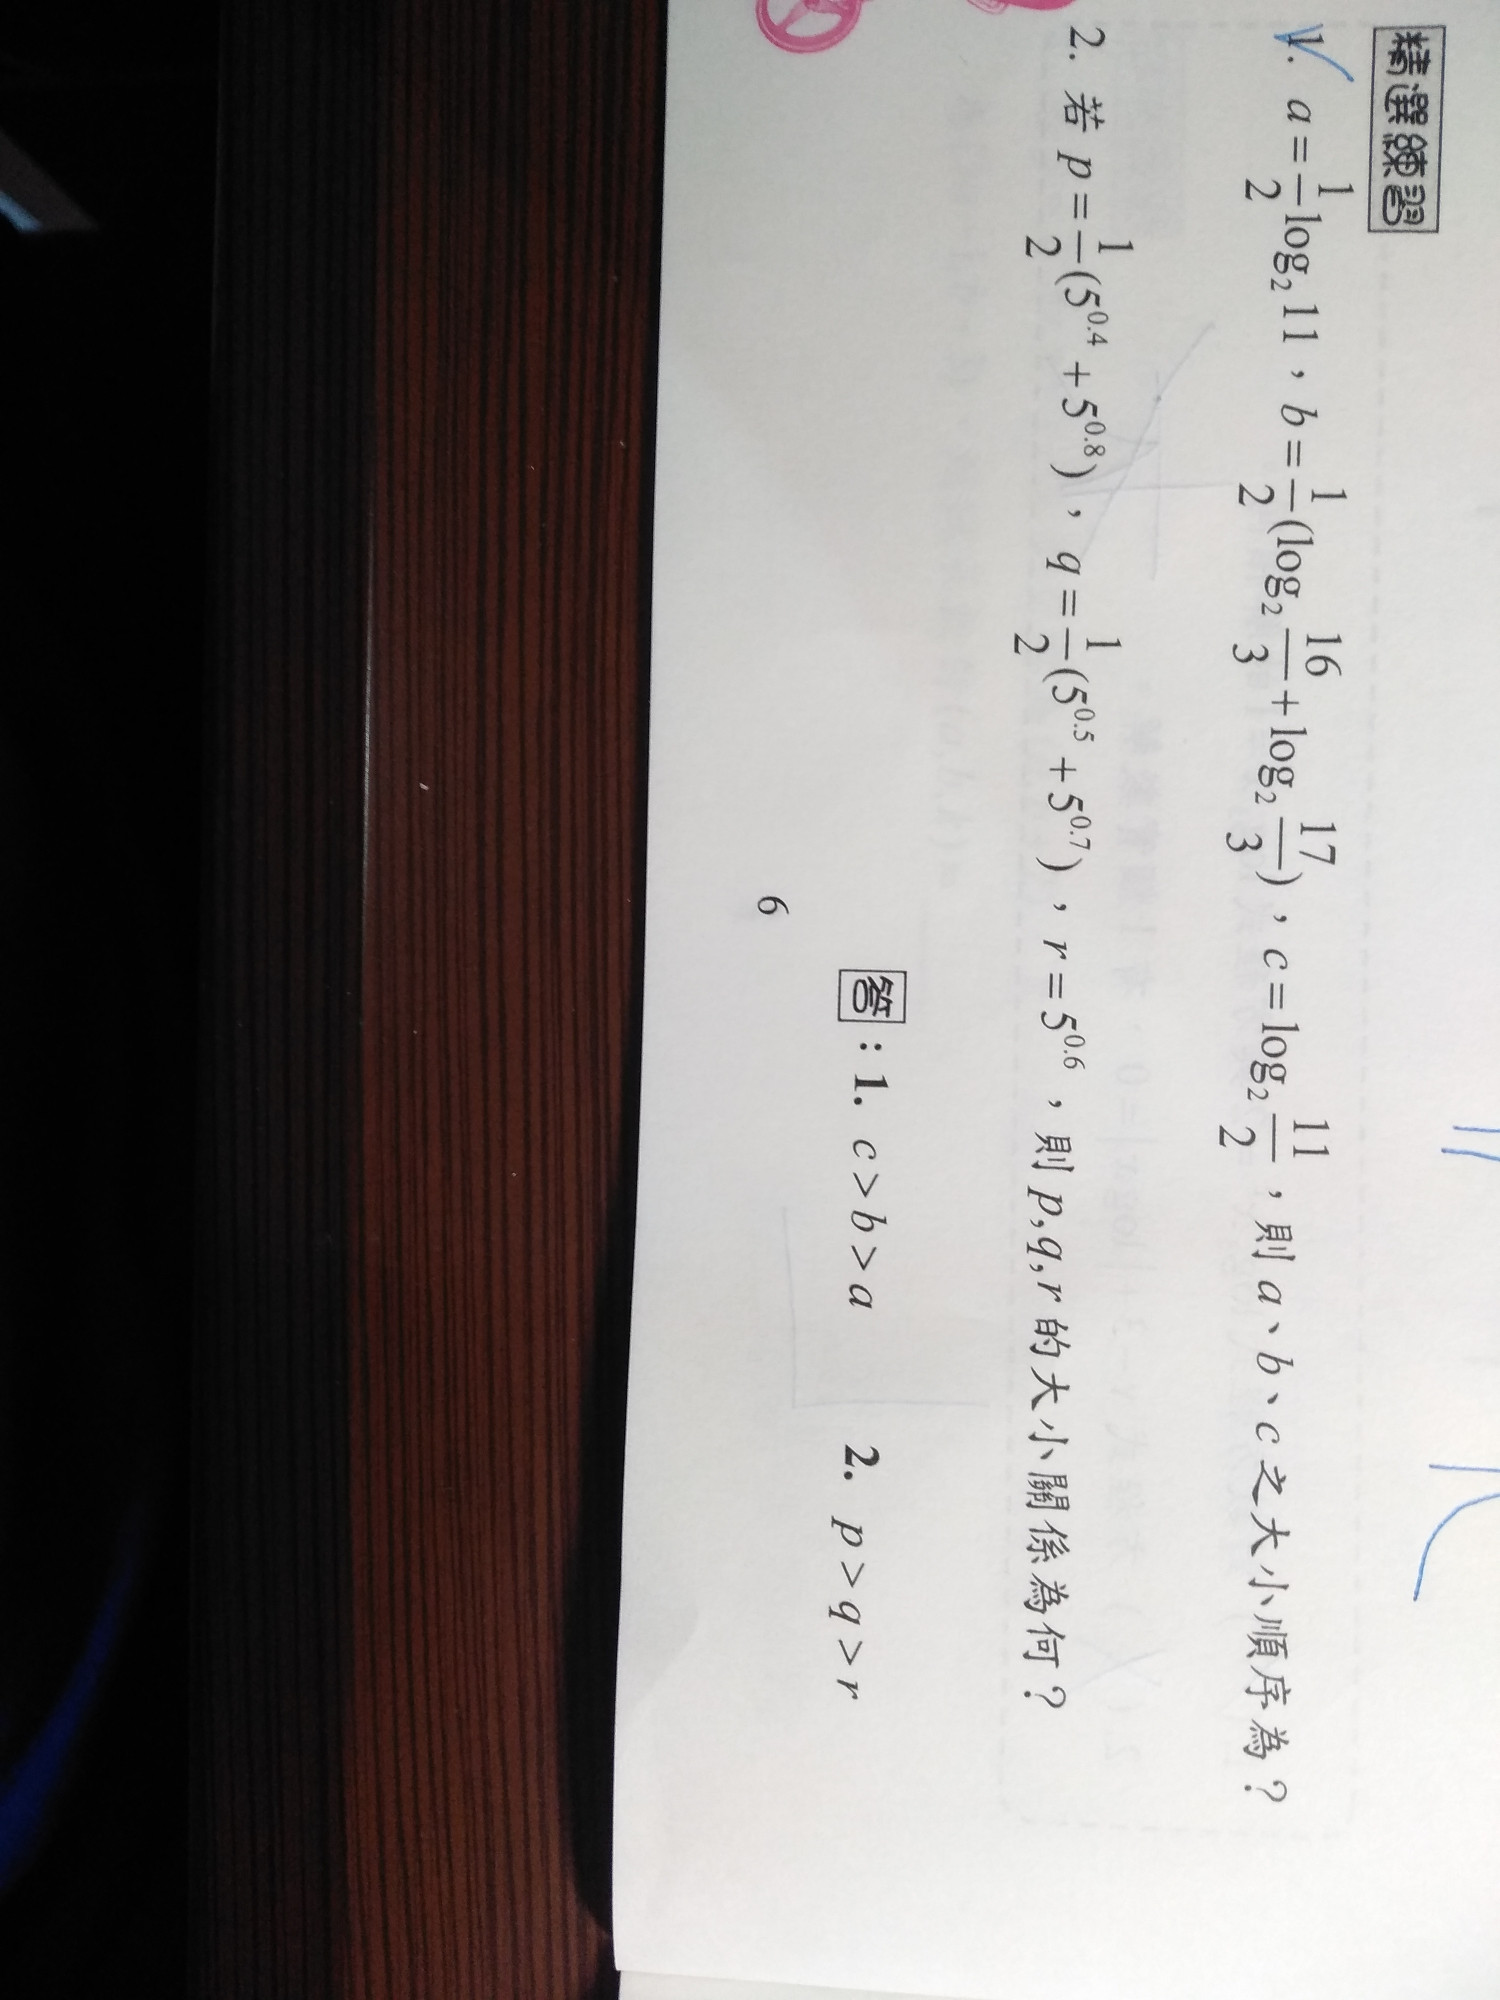 精選練習
1. a=\frac{1}{2}log₂11，b=\frac{1}{2}(log₂\frac{16}{3}+log₂\frac{17}{3})，c=log₂\frac{11}{2}，則a、b、c之大小順序為？
2. 若p=\frac{1}{2}(5^{0.4}+5^{0.8})，q=\frac{1}{2}(5^{0.5}+5^{0.7})，r=5^{0.6}，則p,q,r的大小關係為何？
答：1. c>b>a 2. p>q>r
6